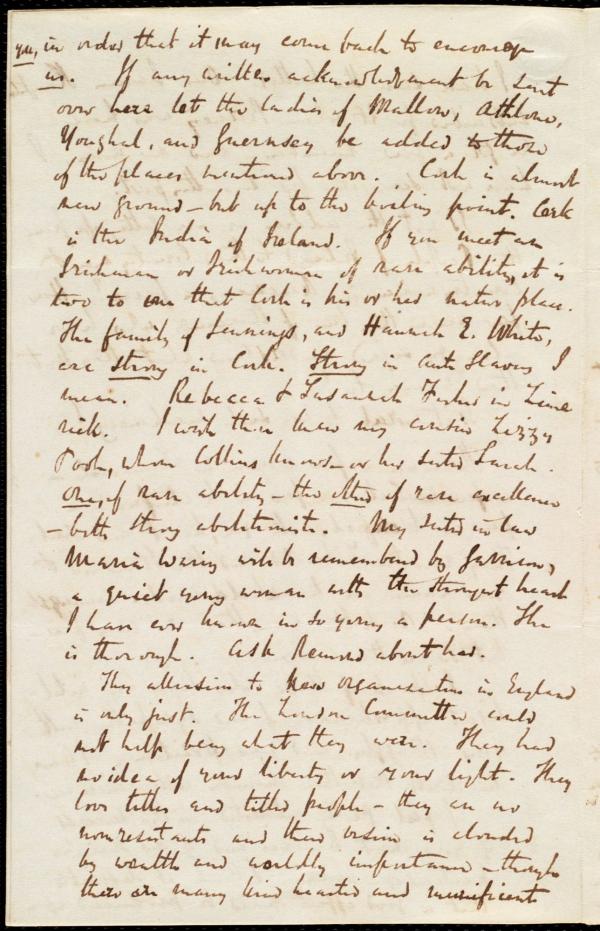 you, in order that it may come back to encourage
us. If any written acknowledgement be sent
over here let the ladies of Mallow, Athlone,
Youghal, and Guernsey be added to those
of the places mentioned above. Cork is almost
new ground – but up to the boiling point. Cork
is the India of Ireland. If you meet an
Irishman or Irishwoman of rare ability, it is
two to one that Cork is his or her native place.
The family of Jennings, and Hannah E. White,
are strong in Cork. Strong in anti slavery I
mean. Rebecca & Susannah Fisher in Lime
rick. I wish thee knew my cousin Lizzy
Poole, whom Collins knows – or her sister Sarah.
One, of rare ability – the other of rare excellence
– both strong abolitionists. My sister in law
Maria Waring will be remembered by Garrison,
a quiet young woman with the strongest head
I have ever known in so young a person. She
is thorough. Ask Remond about her.
Thy allusion to New organization in England
is only just. The London Committee could
not help being what they were. They had
no idea of your liberty or your light. They
love titles and titled people – they are no
nonresistants and their vision is clouded
by wealth and worldly importance – though
there are many kind hearted and munificent